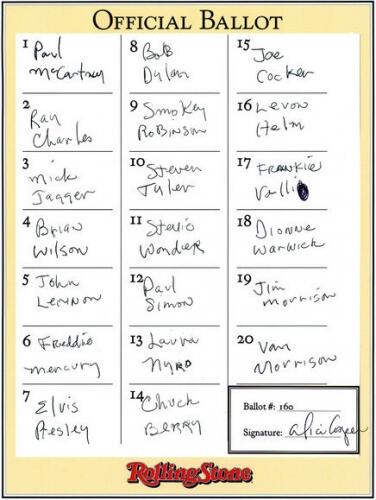 OFFICIAL BALLOT
1 Paul
McCartney
2 Ray
Charles
3 Mick
Jagger
4 Brian
Wilson
5 John
Lennon
6 Freddie
mercury
7 Elvis
Presley
8 Bob
Dylan
9 Smokey
Robinson
10 Steven
Tyler
11 Stevie
Wonder
12 Paul
Simon
13 Laura
Nyro
14 Chuck
BERRY
15 Joe
Cocker
16 Levon
Helm
17 FRANKIE
Valli
18 Dionne
Warwick
19 Jim
Morrison
20 Van
Morrison
Ballot #: 160
Signature: Alice Cooper
RollingStone